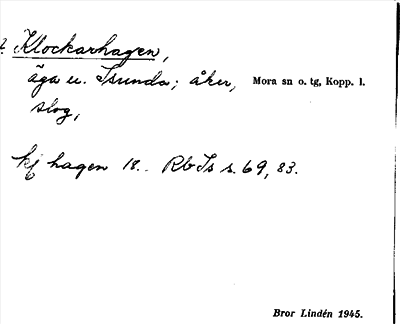 Klockarhagen,
äga u. Isunda; åker, Mora sn o. tg, Kopp. l.
slog,
kj hagen 18.. Rb Is s. 69, 83.
Bror Lindén 1945.